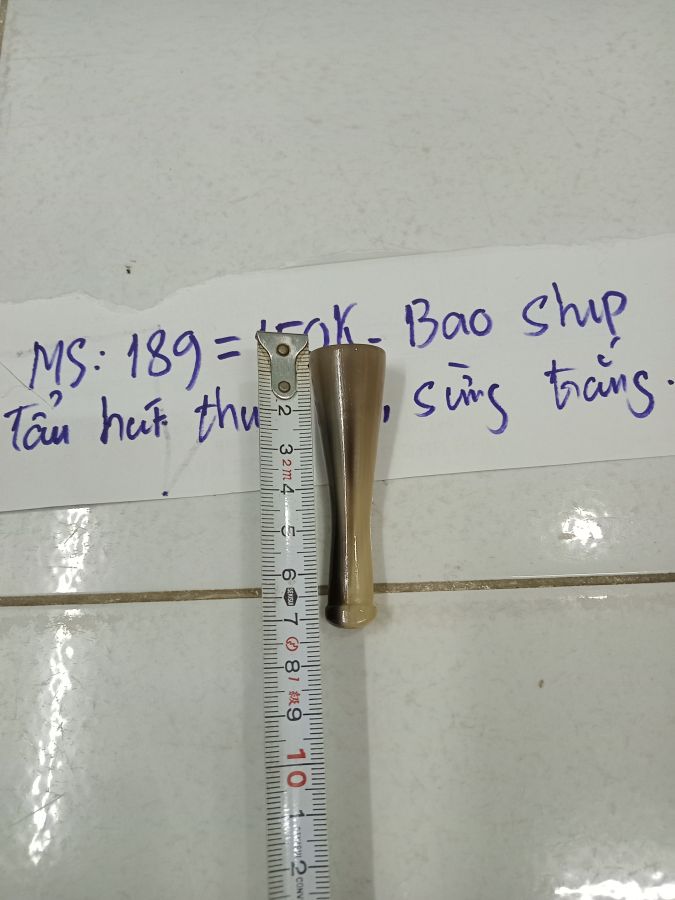 MS: 189 = 150K - Bao ship
Tẩu hút , sừng trắng.
2
3
2m
4
5
6
7
8
1級
9
10
1
2